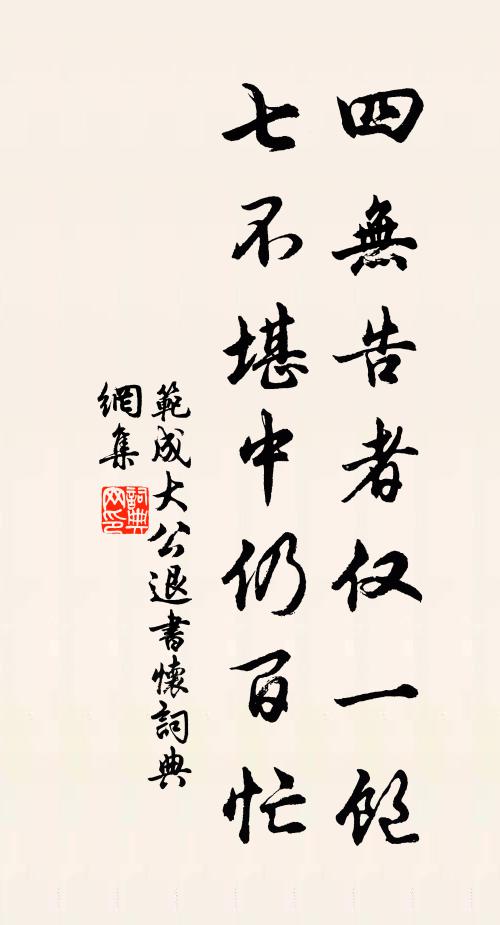 四無告者仅一飽
七不堪中仍百忙
範成大公退書懷詞典
網集
詞典
网印